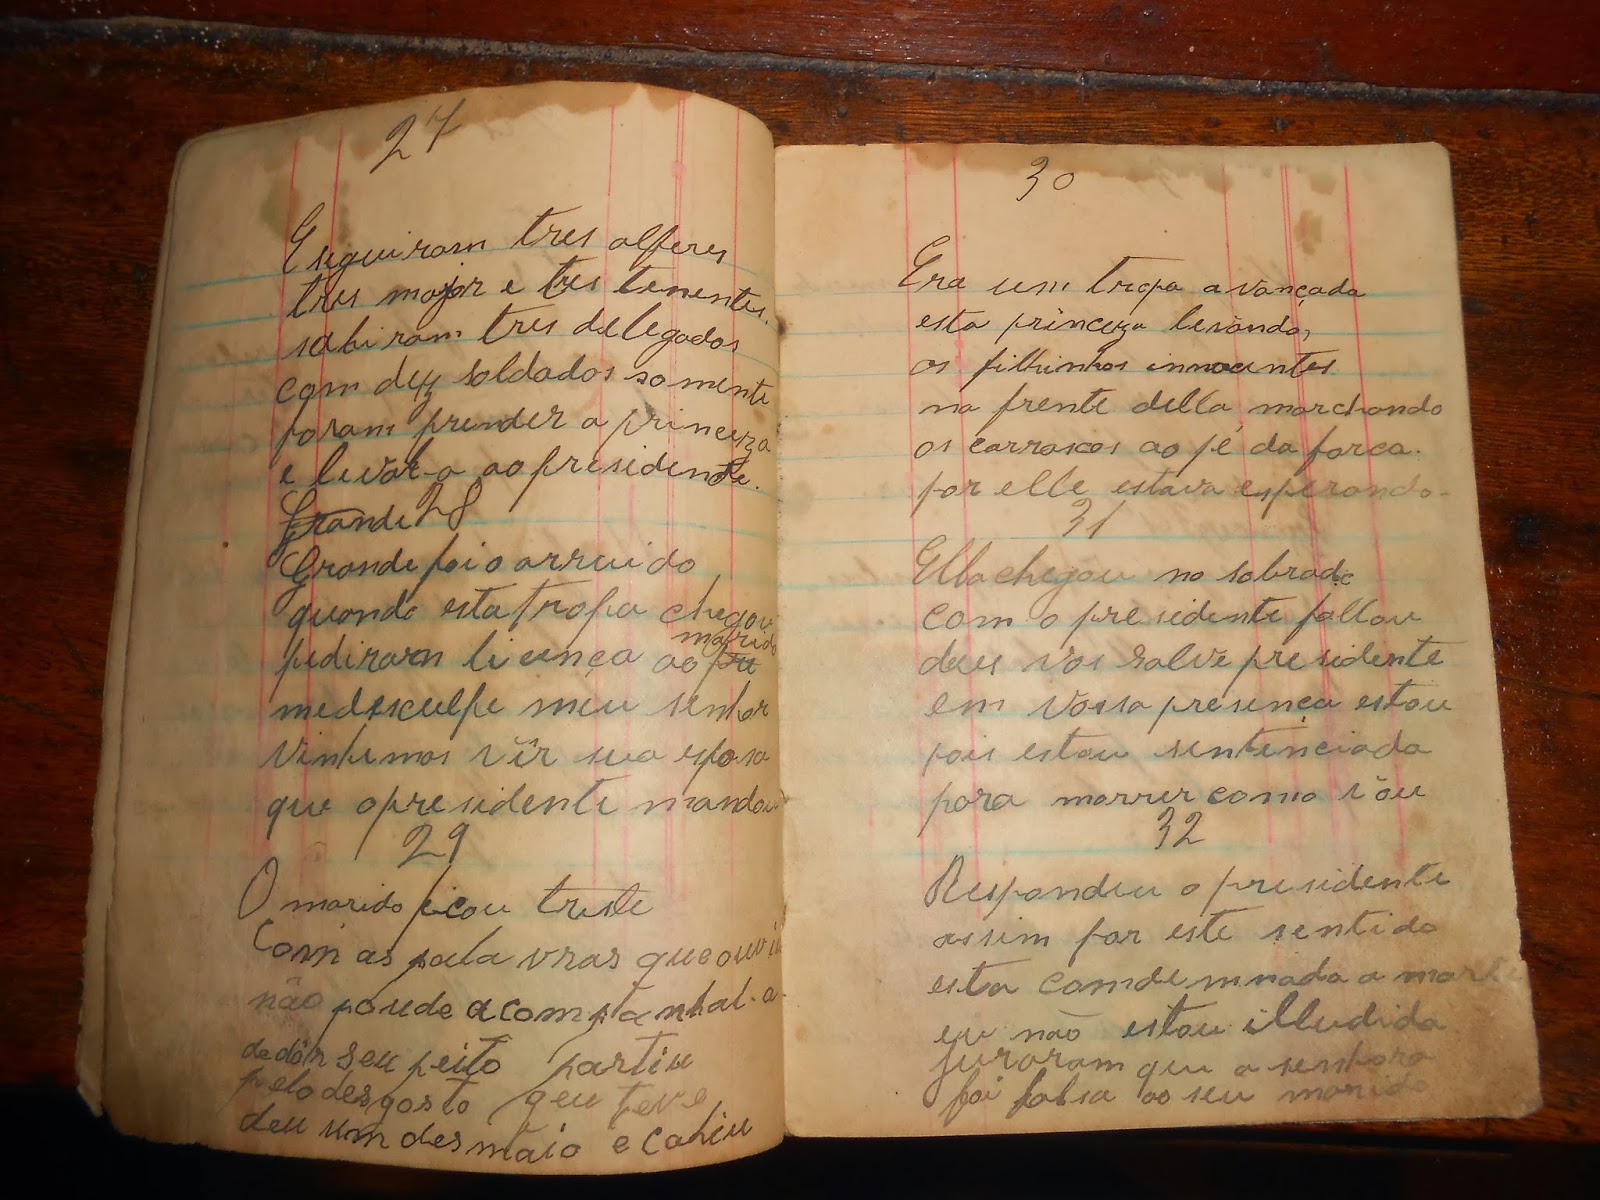 27
E seguiram tres alferes
tres major e tres tenentes.
sahiram tres delegados
com dez soldados somente
foram prender a princeza
e levar-a ao presidente.
Grande 28
Grande foi o arruido
quando esta tropa chegou
marido
pediram licença ao pre
me desculpe meu senhor
vinhemos vêr sua esposa
que o presidente mandou
29
O marido ficou triste
Com as pala vras que ouviu
não poude acompanhal-a-
de dôr seu peito partiu
pelo desgosto que teve
deu um desmaio e cahiu
30
Era um tropa avançada
esta princeza levando,
os filhinhos innocentes
na frente della marchando
os carrascos ao pé da forca.
por elle estava esperando-
31
Ella chegou no sobrado
com o presidente fallou
deus vos salve presidente
em vossa presença estou
pois estou sentenciada
para morrer como vou
32
Respondeu o presidente
assim por este sentido
esta comdemnada a morte
eu não estou illudido
juraram que a senhora
foi falsa ao seu marido